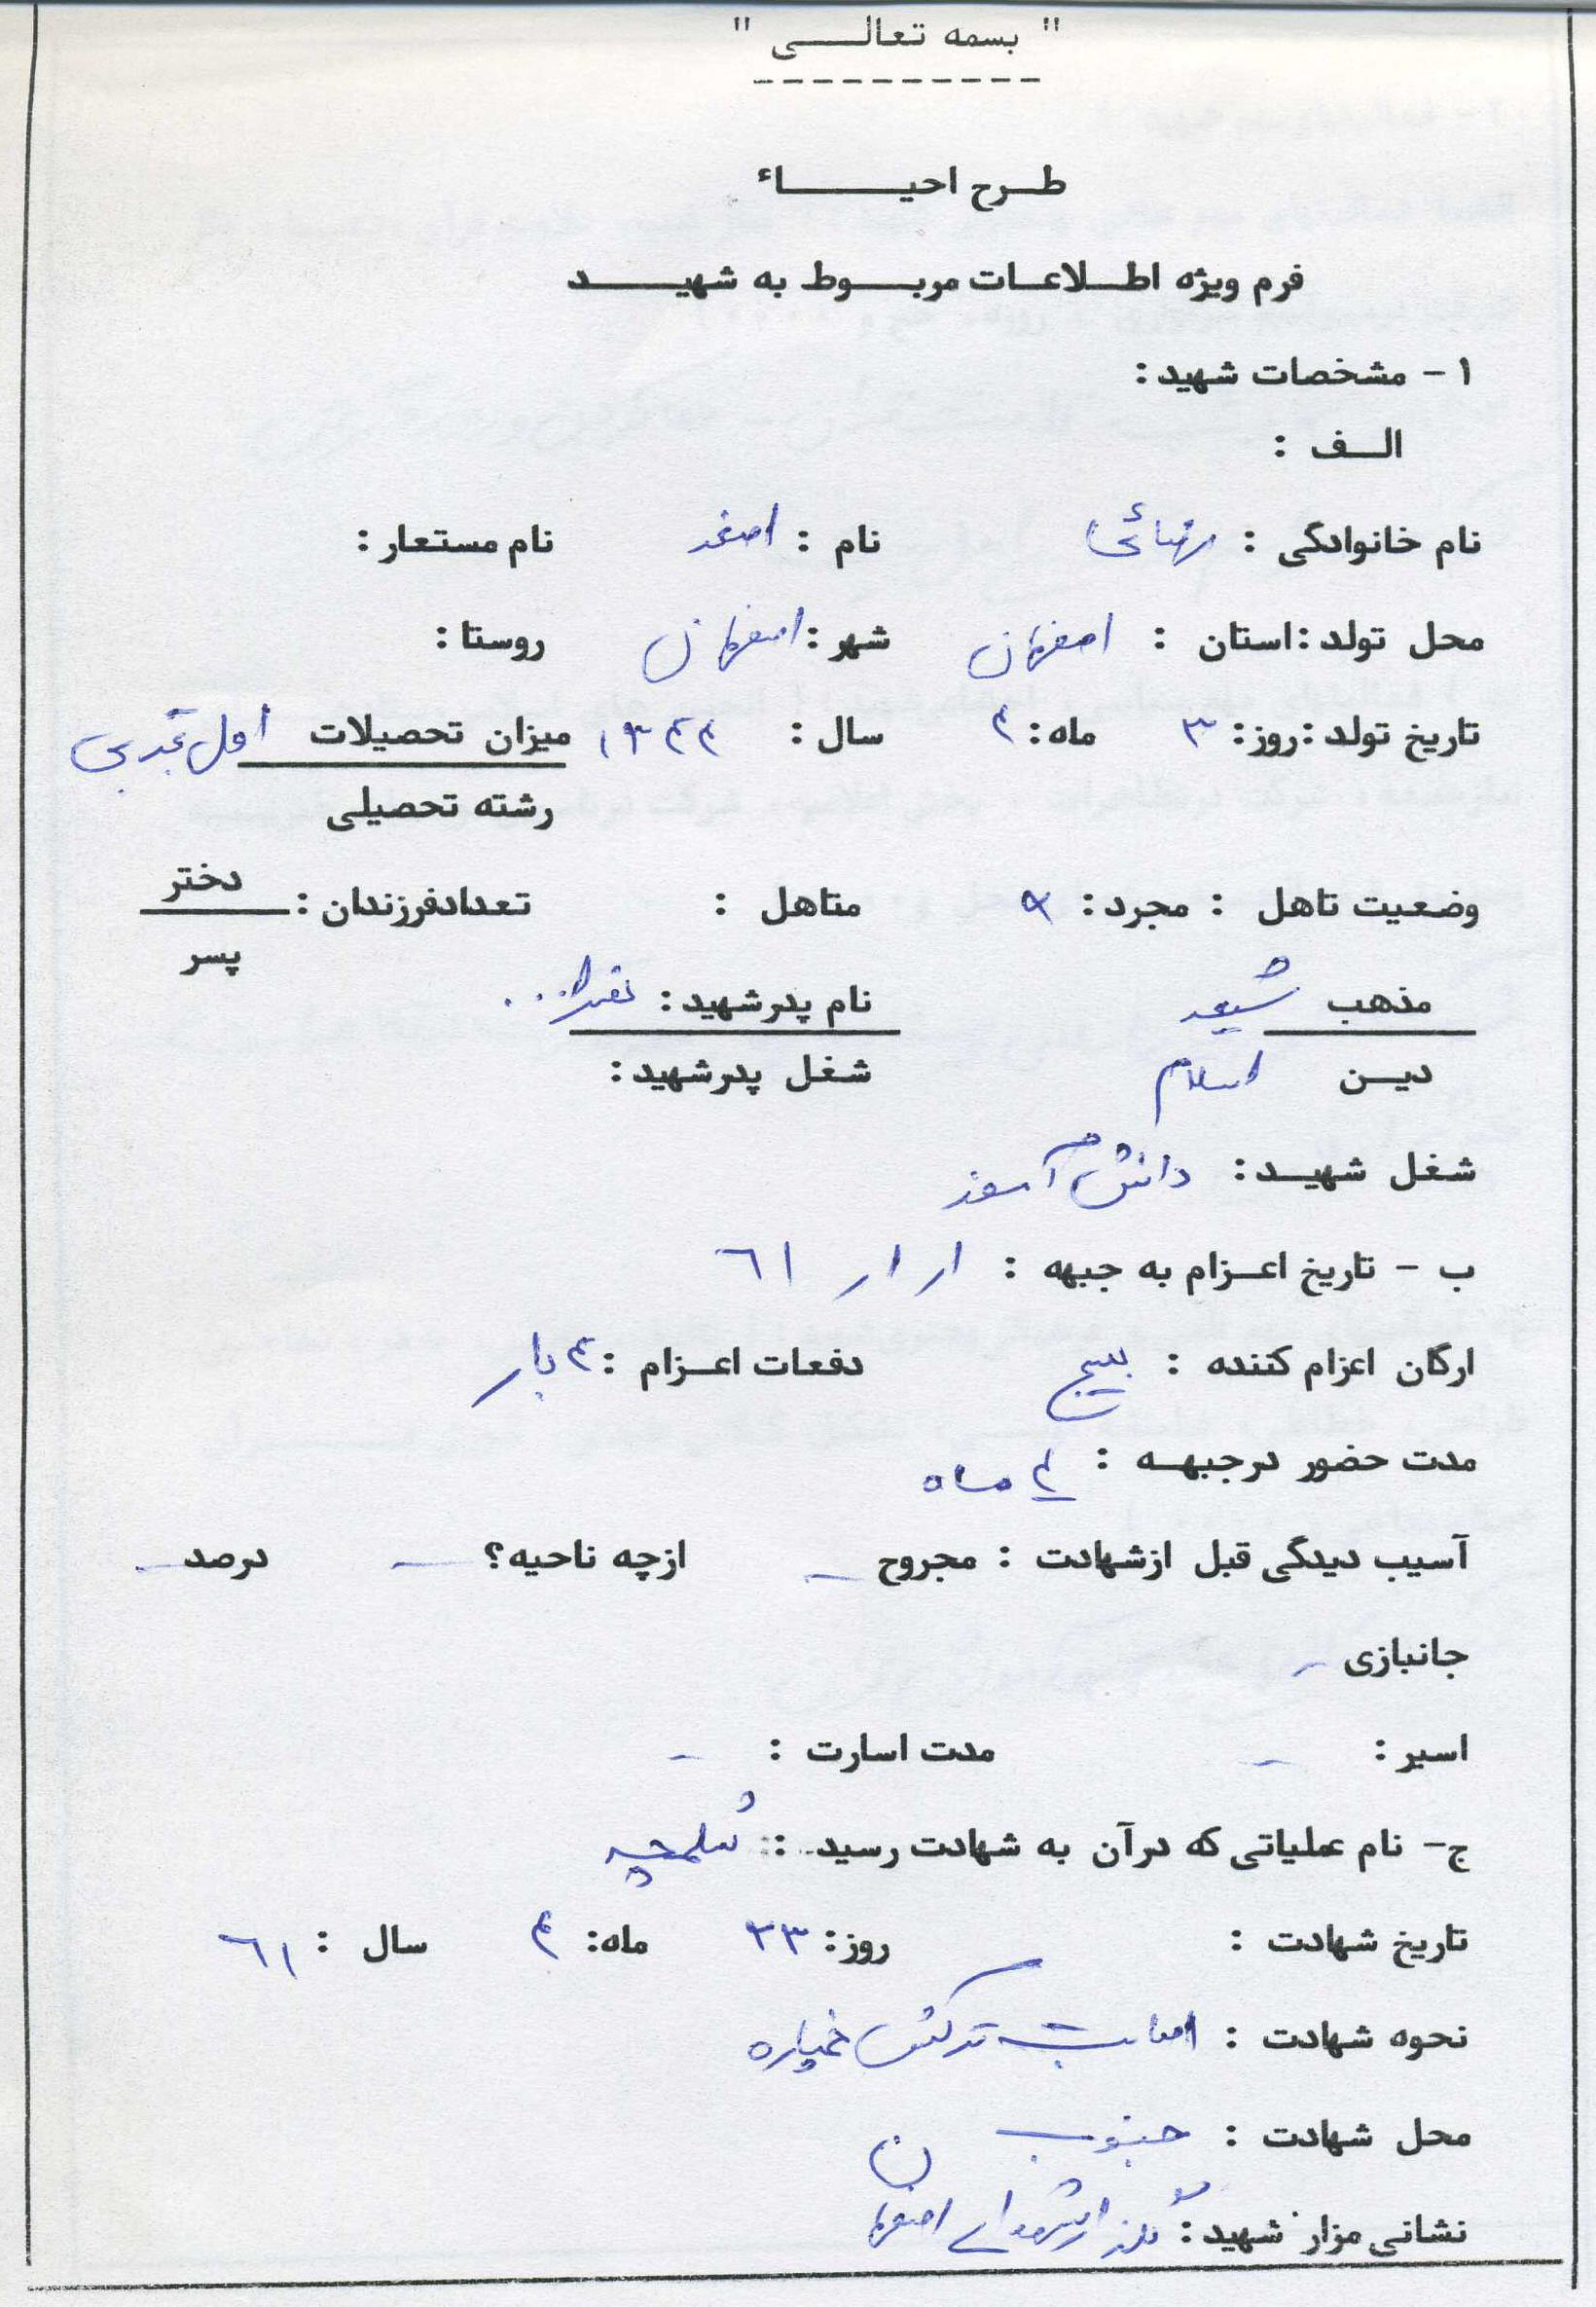 " بسمه تعالی "
طرح احیاء
فرم ویژه اطلاعات مربوط به شهید
۱ - مشخصات شهید :
الف :
نام خانوادگی : نام : اصغر نام مستعار :
محل تولد : استان : اصفهان شهر : اصفهان روستا :
تاریخ تولد : روز : ۳ ماه : ۴ سال : ۱۳۴۴ میزان تحصیلات اول تجربی
رشته تحصیلی
وضعیت تاهل : مجرد : × متاهل : تعداد فرزندان : دختر
پسر
مذهب شیعه نام پدر شهید :
دین اسلام شغل پدر شهید :
شغل شهید : دانش آموز
ب - تاریخ اعزام به جبهه : ۱ر۱ر ۶۱
ارگان اعزام کننده : بسیج دفعات اعزام : ۴ بار
مدت حضور درجبهه : ۴ ماه
آسیب دیدگی قبل ازشهادت : مجروح - ازچه ناحیه؟ - درصد -
جانبازی -
اسیر : - مدت اسارت : -
ج- نام عملیاتی که درآن به شهادت رسید : شلمچه
تاریخ شهادت : روز : ۲۳ ماه : ۴ سال : ۶۱
نحوه شهادت : اصابت ترکش خمپاره
محل شهادت : جنوب
نشانی مزار شهید : گلزار شهدای اصفهان